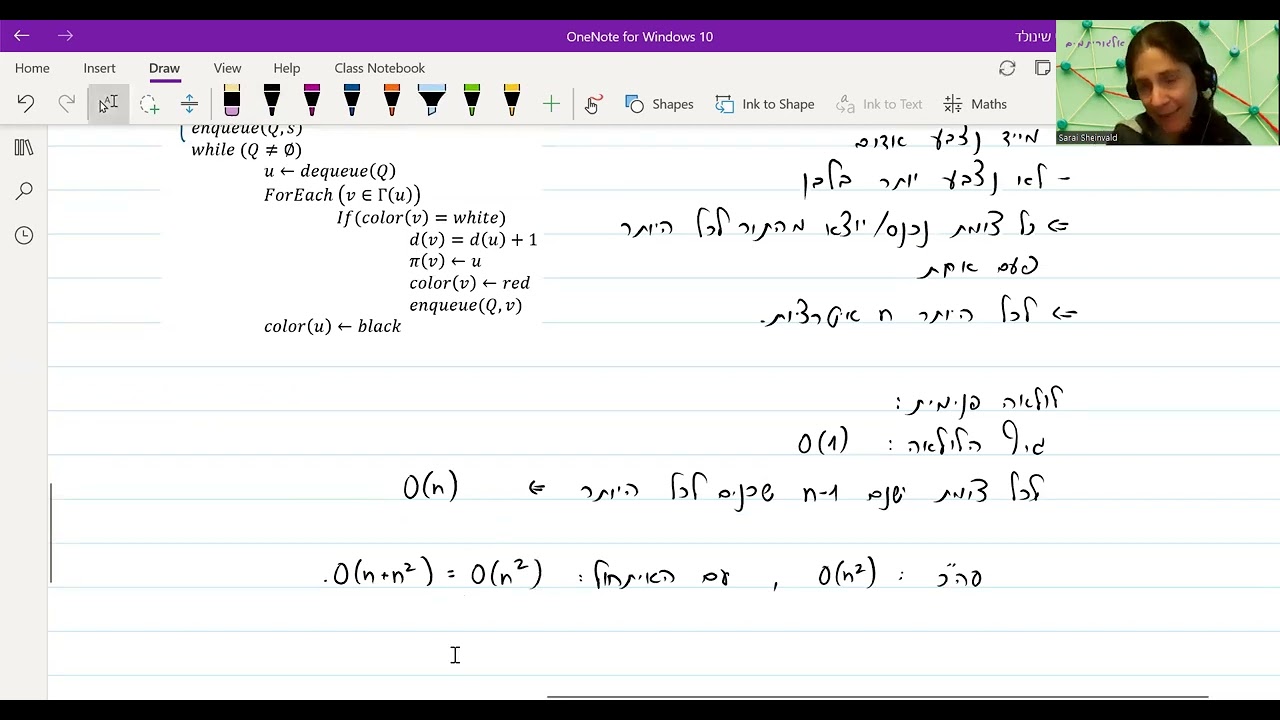 OneNote for Windows 10
שינולד
Home Insert Draw View Help Class Notebook
Shapes Ink to Shape Ink to Text Maths
אלגוריתמים
Sarai Sheinvald
enqueue(Q,s)
while (Q ≠ ∅)
u ← dequeue(Q)
ForEach (v ∈ Γ(u))
If(color(v) = white)
d(v) = d(u) + 1
π(v) ← u
color(v) ← red
enqueue(Q,v)
color(u) ← black
מייד נצבע אדום
- לא נצבע יותר בלבן
⇐ כל צומת נכנס/יוצא מהתור לכל היותר
פעם אחת
⇐ לכל היותר n איטרציות.
לולאה פנימית:
גוף הלולאה: O(1)
לכל צומת ישנם n-1 שכנים לכל היותר ⇐ O(n)
סה"כ: O(n²), עם האיתחול: O(n+n²) = O(n²).